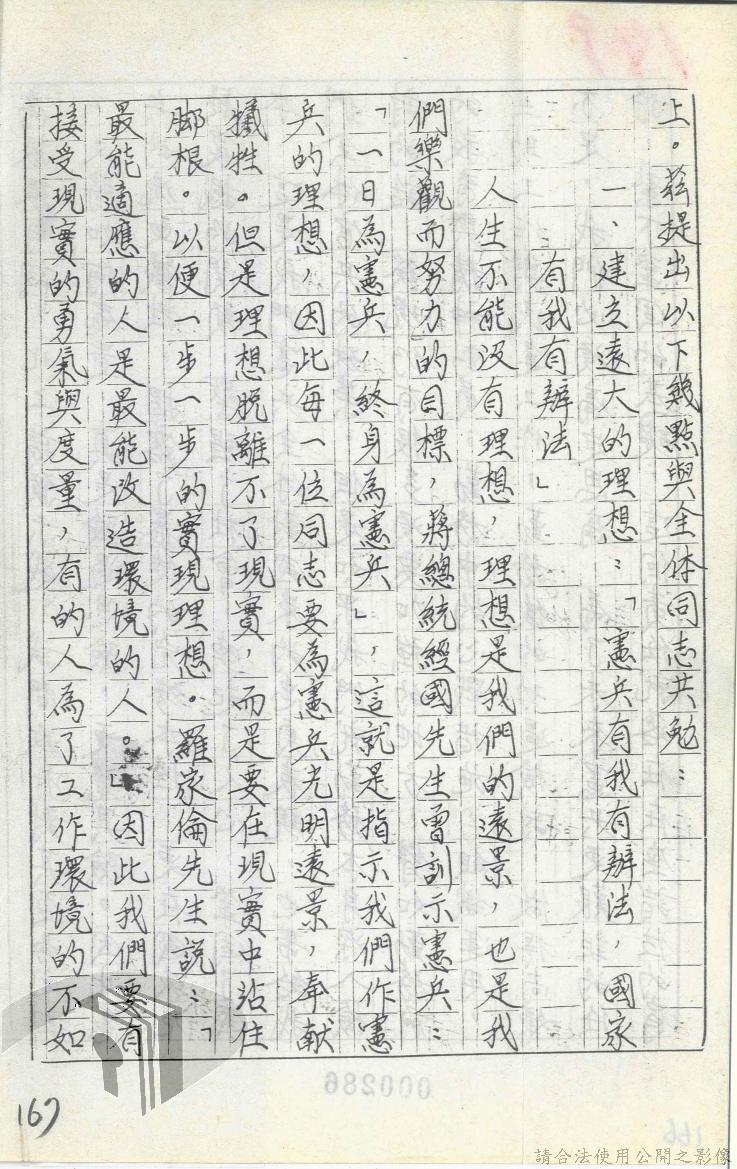 上。茲提出以下幾點與全体同志共勉：
一、建立遠大的理想：「憲兵有我有辦法，國家
有我有辦法」
人生不能沒有理想，理想是我們的遠景，也是我
們樂觀而努力的目標，蔣總統經國先生曾訓示憲兵：
「一日為憲兵，終身為憲兵」，這就是指示我們作憲
兵的理想，因此每一位同志要為憲兵光明遠景，奉献
犧牲。但是理想脫離不了現實，而是要在現實中站住
腳根。以便一步一步的實現理想。羅家倫先生說：「
最能適應的人是最能改造環境的人。」因此我們要有
接受現實的勇氣與度量，有的人為了工作環境的不如
000286
167
166
請合法使用公開之影像